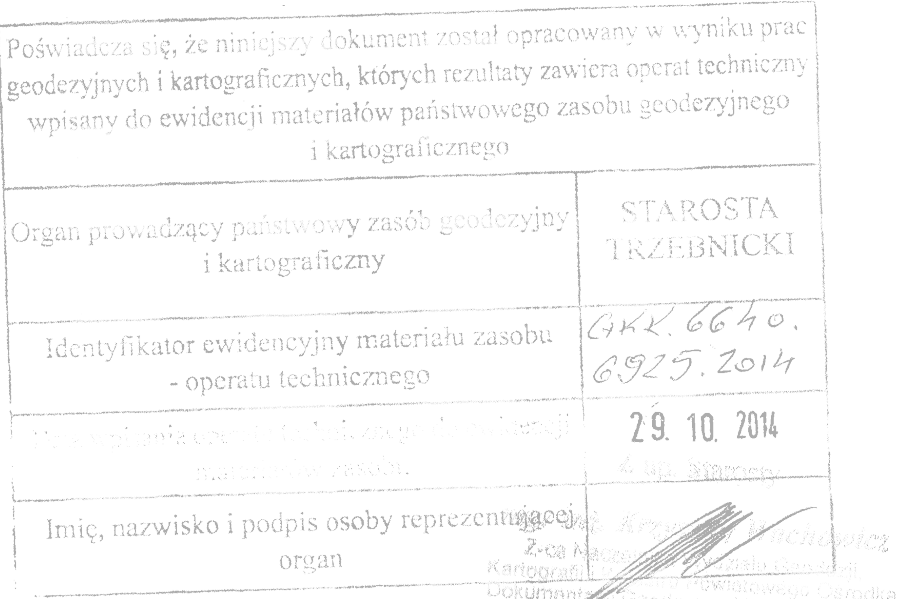 Poświadcza się, że niniejszy dokument został opracowany w wyniku prac
geodezyjnych i kartograficznych, których rezultaty zawiera operat techniczny
wpisany do ewidencji materiałów państwowego zasobu geodezyjnego
i kartograficznego
Organ prowadzący państwowy zasób geodezyjny
i kartograficzny
STAROSTA
TRZEBNICKI
Identyfikator ewidencyjny materiału zasobu
- operatu technicznego
GKK.6640.
6925.2014
operatu technicznego do ewidencji
materiałów zasobu
29. 10. 2014
Z up. Starosty
Imię, nazwisko i podpis osoby reprezentującej
organ
Z-ca
Powiatowego Ośrodka